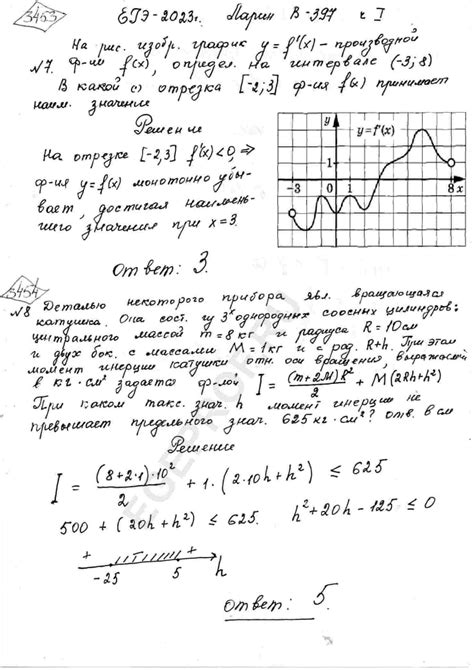 3453 ЕГЭ-2023г. Ларин В-397 ч I
На рис. изобр. график y = f'(x) - производной
№7. ф-ии f(x), определ. на интервале (-3; 8)
В какой () отрезка [-2; 3] ф-ия f(x) принимает
наим. значение
Решение
На отрезке [-2,3] f'(x)<0, ⇒
ф-ия y=f(x) монотонно убы-
вает, достигая наимень-
шего значения при x=3.
y
y=f'(x)
1
-3 0 1 8 x
Ответ: 3.
3454
№8 Деталью некоторого прибора явл. вращающаяся
катушка. Она сост. из 3х однородных соосных цилиндров:
центрального массой m = 8 кг и радиуса R = 10 см
и двух бок. с массами M = 1 кг и с рад. R+h. При этом
момент инерции катушки отн. оси вращения, выражаемый
в кг·см² задается ф-лой I = (m+2M)R²/2 + M(2Rh+h²)
При каком макс. знач. h момент инерции не
превышает предельного знач. 625 кг·см²? отв. в см
Решение
I = (8+2·1)·10²/2 + 1·(2·10h+h²) ≤ 625
500 + (20h+h²) ≤ 625. h²+20h-125 ≤ 0
+ - +
-25 5 h
Ответ: 5.
EGEPROFRF.RU